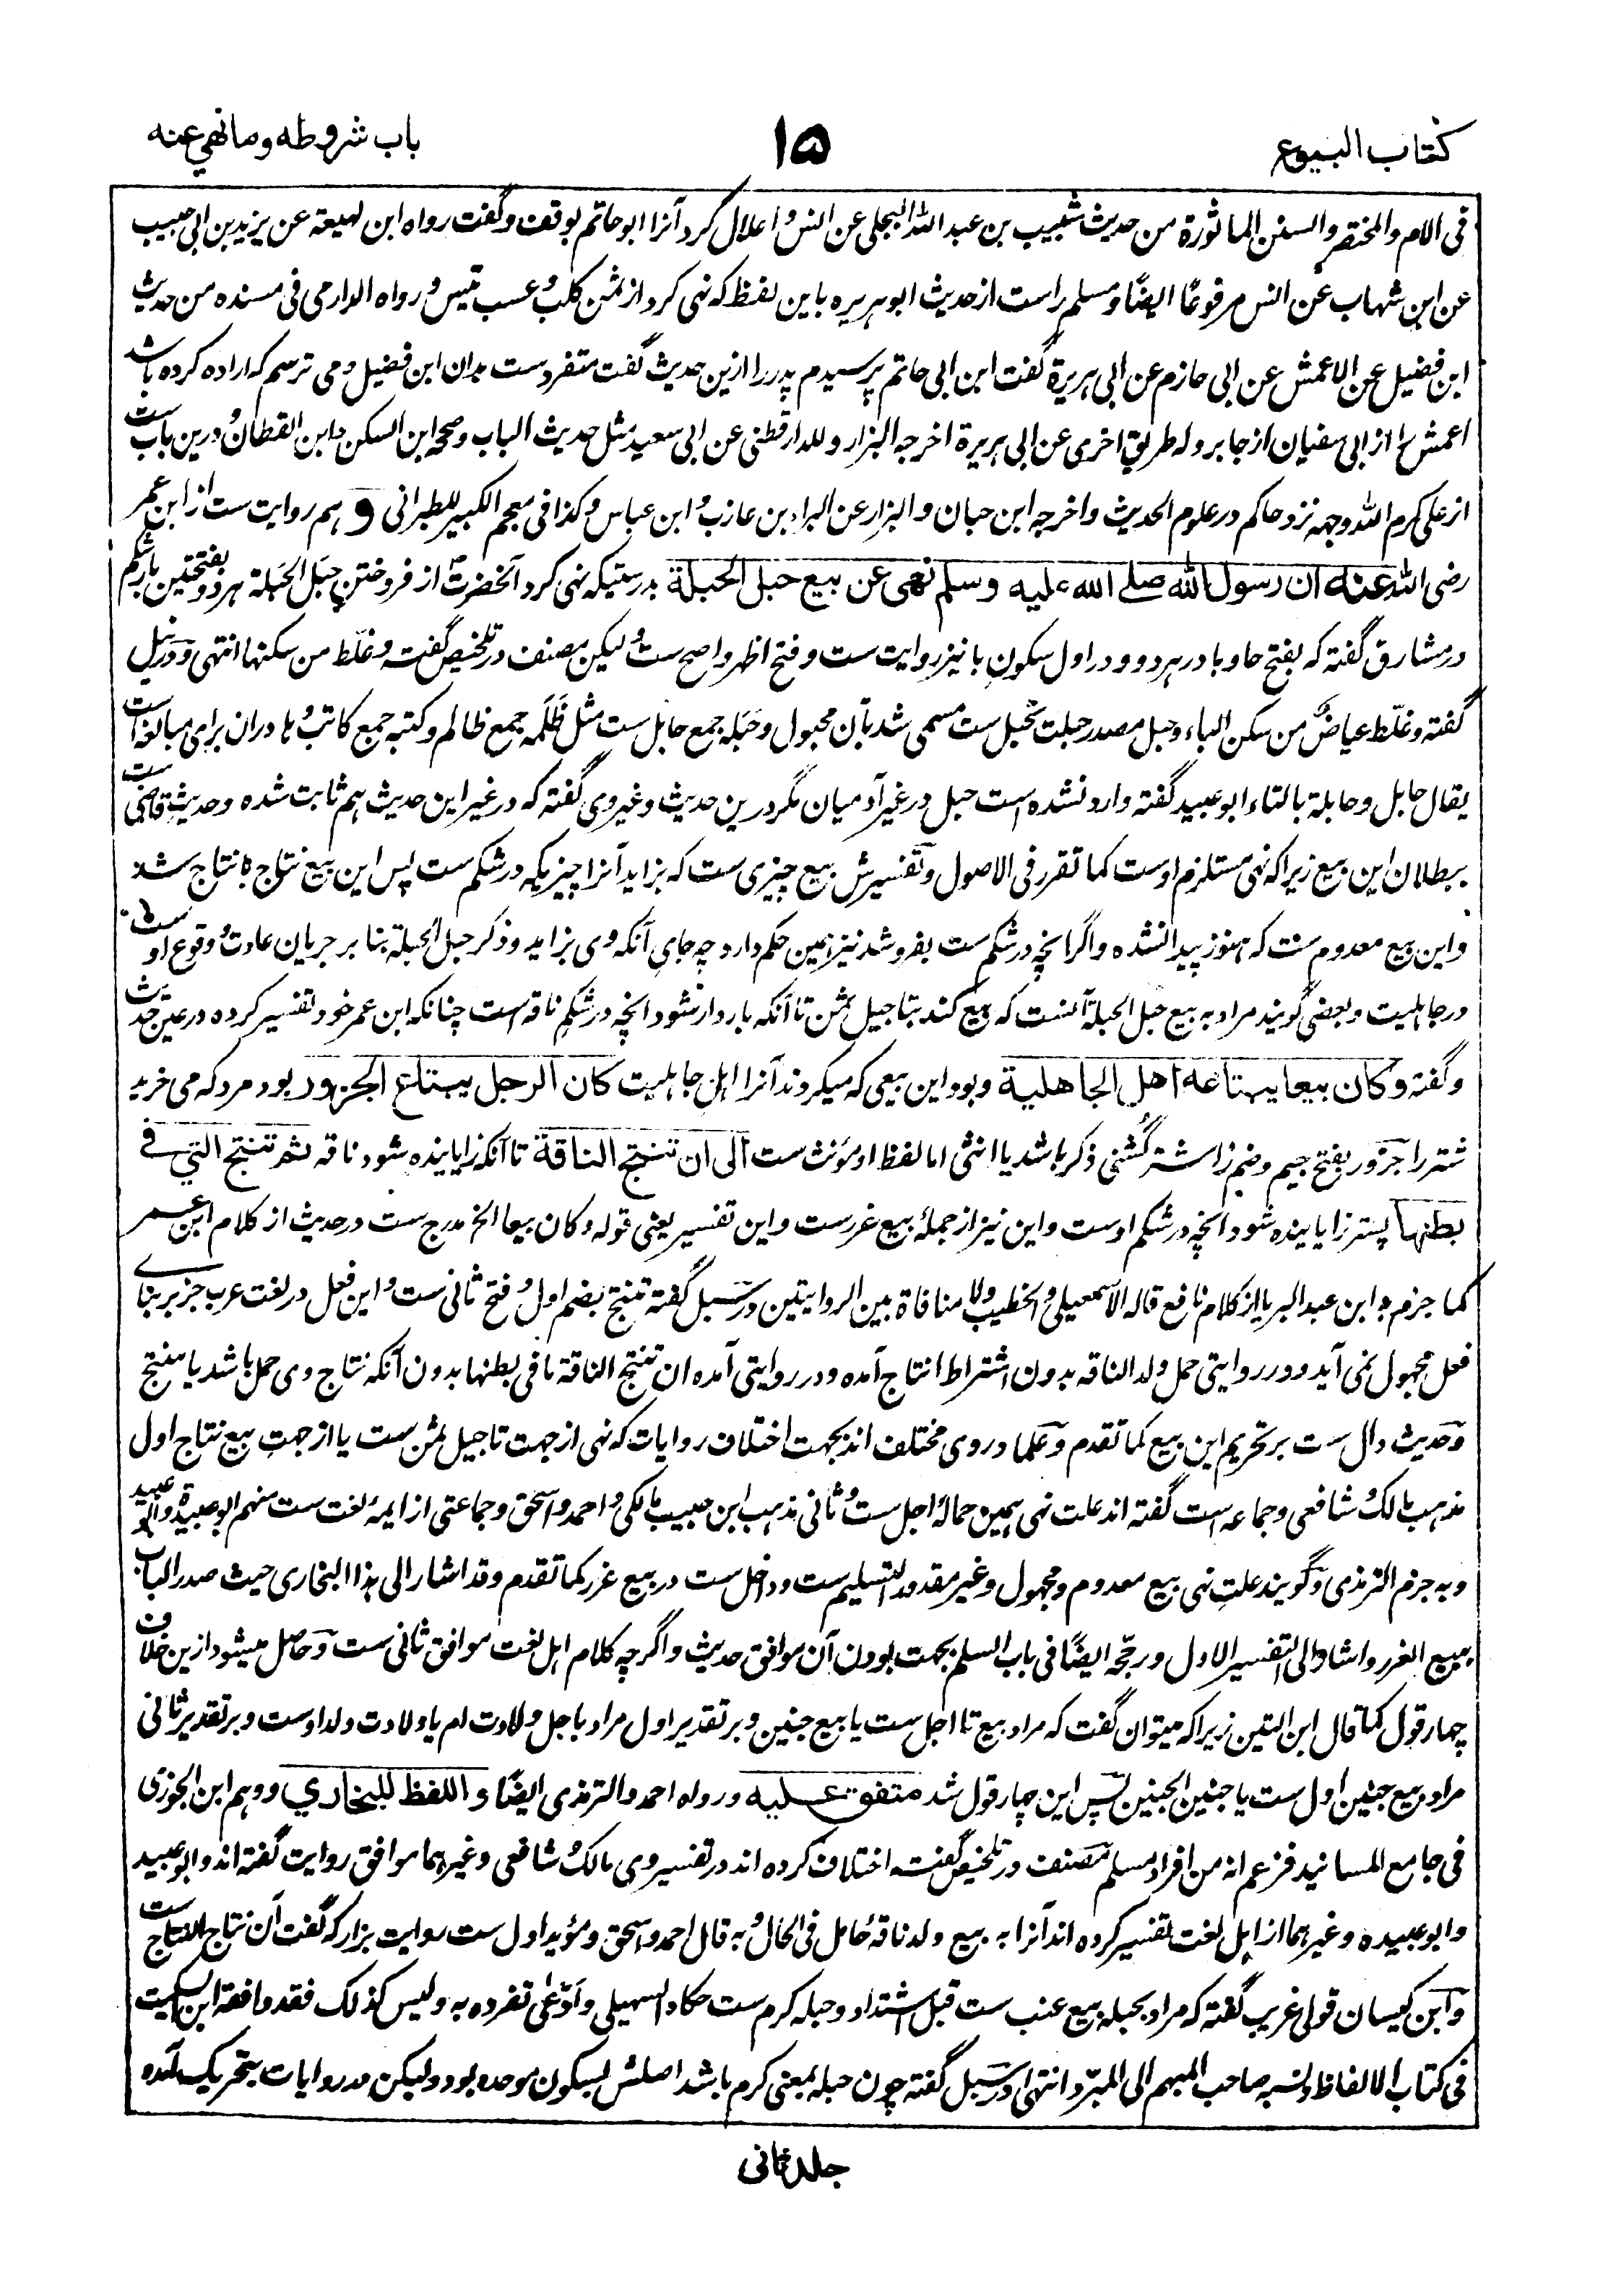 كتاب البيوع
۱۵
باب شروطه وما نهي عنه
فی الام والمختصر والسنن الماثورة من حدیث شبیب بن عبد اللہ البجلی عن انس و اعلال کرد آنرا ابو حاتم بوقف و گفت رواہ ابن لہیعة عن یزید بن ابی حبیب
عن ابن شہاب عن انس مرفوعًا ایضًا و مسلم راست از حدیث ابو ہریرہ باین لفظ کہ نہی کرد از ثمن کلب و عسب تیس و رواہ الدارمی فی مسندہ من حدیث
ابن فضیل عن الاعمش عن ابی حازم عن ابی ہریرة گفت ابن ابی حاتم پرسیدم پدر را ازین حدیث گفت متفردست بدان ابن فضیل و می ترسم کہ ارادہ کردہ باشد
اعمش را از ابی سفیان از جابر ولہ طریق اخری عن ابی ہریرة اخرجہ البزار و للدارقطنی عن ابی سعید مثل حدیث الباب وصححہ ابن السکن و ابن القطان و درین باب ست
از علی کرم اللہ وجہہ نزد حاکم در علوم الحدیث واخرجہ ابن حبان و البزار عن البراء بن عازب و ابن عباس و کذا فی معجم الکبیر للطبرانی و ہم روایت ست از ابن عمر
رضی اللہ عنه ان رسول الله صلے الله علیه وسلم نهى عن بيع حبل الحبلة بدرستیکہ نہی کرد آنحضرتؐ از فروختن حَبَل الحَبَلة ہر دو بفتحتین بار شکم
در مشارق گفتہ کہ بفتح حا و با در ہر دو و در اول سکون با نیز روایت ست و فتح اظہر و اصح ست و لیکن مصنف در تلخیص گفتہ و غلّط من سکنہا انتہی و در نیل
گفتہ و غلّط عیاض من سکن الباء و حبل مصدر حبلت تحبل ست مسمی شد بآن محبول و حَبَلہ جمع حابل ست مثل ظَلَمہ جمع ظالم و کتبہ جمع کاتب و ہا دران برای مبالغہ است
یقال حابل و حابلة بالتاء ابو عبید گفتہ وارد نشدہ است حبل در غیر آدمیان مگر درین حدیث و غیر وی گفتہ کہ در غیر این حدیث ہم ثابت شدہ و حدیث قاضی ست
ببطلان این بیع زیرا کہ نہی مستلزم اوست کما تقرر فی الاصول و تفسیرش بیع چیزی ست کہ بزاید آنرا چیزیکہ در شکم ست پس این بیع نتاج نتاج شد
و این بیع معدوم ست کہ ہنوز پیدا نشدہ و اگر انچہ در شکم ست بفروشد نیز ہمین حکم دارد چہ جای آنکہ وی بزاید و ذکر حبل الحبلة بنا بر جریان عادت و وقوع او ست
در جاہلیت و بعضی گویند مراد بہ بیع حبل الحبلة آنست کہ بیع کند بتاجیل ثمن تا آنکہ باردار شود انچہ در شکم ناقہ است چنانکہ ابن عمر خود تفسیر کردہ در عین حدیث
و گفتہ وكان بيعا يبتاعه اهل الجاهلية و بود این بیعی کہ میکردند آنرا اہل جاہلیت كان الرجل يبتاع الجزور بود مرد کہ می خرید
شتر را جزور بفتح جیم و ضم زا شتر کُشتنی ذکر باشد یا انثی اما لفظ او مونث ست الى ان تنتج الناقة تا آنکہ زایانیدہ شود ناقہ ثم تنتج التي في
بطنها پستر زایانیدہ شود انچہ در شکم اوست و این نیز از جملۂ بیع غررست و این تفسیر یعنی قولہ و کان بیعا الخ مدرج ست در حدیث از کلام ابن عمر
کما جزم بہ ابن عبد البر یا از کلام نافع قالہ الاسمعیلی والخطیب ولا منافاة بین الروایتین در سبل گفتہ تنتج بضم اول و فتح ثانی ست و این فعل در لغت عرب جز بر بنای
فعل مجہول نمی آید و در روایتی حمل ولد الناقہ بدون اشتراط انتاج آمدہ و در روایتی آمدہ ان تنتج الناقة ما فی بطنہا بدون آنکہ نتاج وی حمل باشد یا منتج
و حدیث دال ست بر تحریم این بیع کما تقدم و علما در وی مختلف اند بجہت اختلاف روایات کہ نہی از جہت تاجیل ثمن ست یا از جہت بیع نتاج اول
مذہب مالک و شافعی و جماعہ است گفتہ اند علت نہی ہمین جہالۂ اجل ست و ثانی مذہب ابن حبیب مالکی و احمد و اسحق و جماعتی از ایمۂ لغت ست منہم ابو عبیدة و ابو عبید
و بہ جزم الترمذی و گویند علت نہی بیع معدوم و مجہول و غیر مقدور التسلیم ست و داخل ست در بیع غرر کما تقدم و قد اشار الی ہذا البخاری حیث صدر الباب
ببیع الغرر و اشار الی التفسیر الاول و رجّحہ ایضًا فی باب السلم بجہت بودن آن موافق حدیث و اگرچہ کلام اہل لغت موافق ثانی ست و حاصل میشود ازین خلاف
چہار قول کما قال ابن التین زیرا کہ میتوان گفت کہ مراد بیع تا اجل ست یا بیع جنین و بر تقدیر اول مراد باجل ولادت ام یا ولادت ولد اوست و بر تقدیر ثانی
مراد بیع جنین اول ست یا جنین الجنین پس این چہار قول شد متفق علیه و رواہ احمد و الترمذی ایضًا واللفظ للبخاري و وہم ابن الجوزی
فی جامع المسانید فزعم انہ من افراد مسلم مصنف در تلخیص گفتہ اختلاف کردہ اند در تفسیر وی مالک و شافعی و غیرہما موافق روایت گفتہ اند و ابو عبید
و ابو عبیدہ و غیرہما از اہل لغت تفسیر کردہ اند آنرا بہ بیع ولد ناقۂ حامل فی الحال و بہ قال احمد و اسحق و مؤید اول ست روایت بزار کہ گفت آن نتاج النتاج ست
و ابن کیسان قولی غریب گفتہ کہ مراد بحبلہ بیع عنب ست قبل اشتداد و حبلہ کرم ست حکاہ السہیلی و ادّعی تفردہ بہ و لیس کذلک فقد وافقہ ابن السکیت
فی کتاب الالفاظ و نسبہ صاحب المبہم الی المبرّد انتہی و در سبل گفتہ چون حبلہ بمعنی کرم باشد اصلش بسکون موحدہ بود ولیکن در روایات بتحریک آمدہ
جلد ثانی